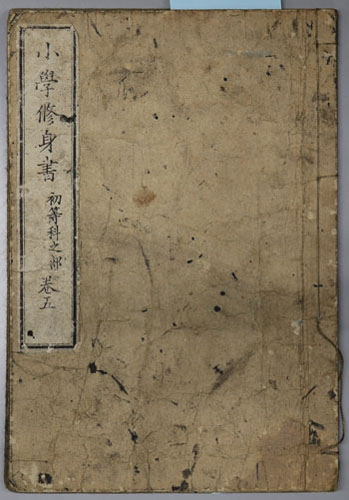 小學修身書 初等科之部 卷五